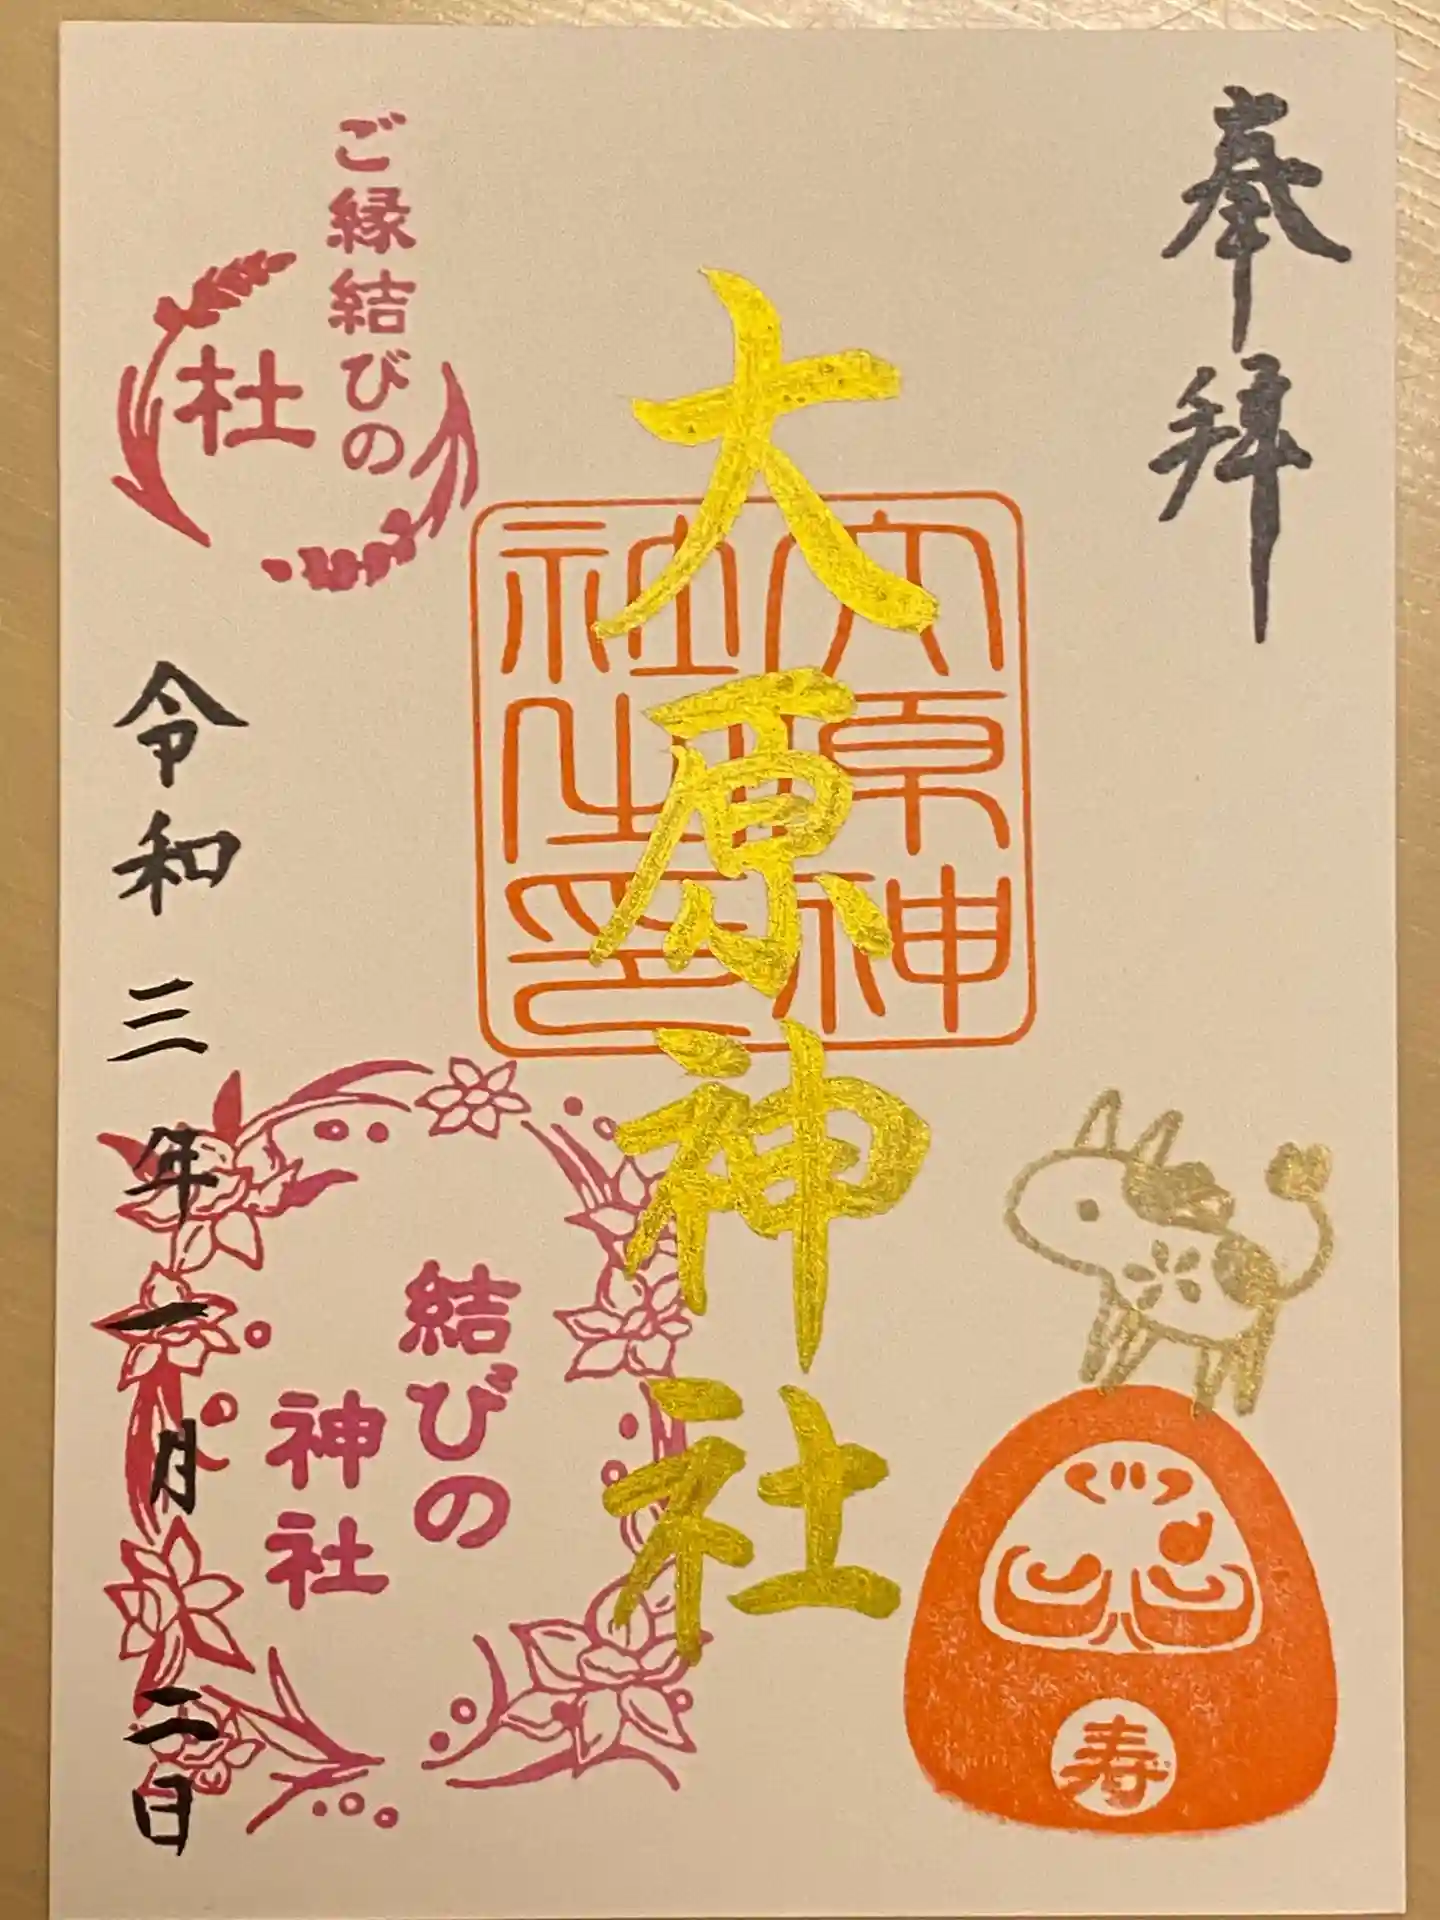 奉拝
大原神社
大原神社之印
ご縁結びの
杜
結びの
神社
令和三年一月二日
寿